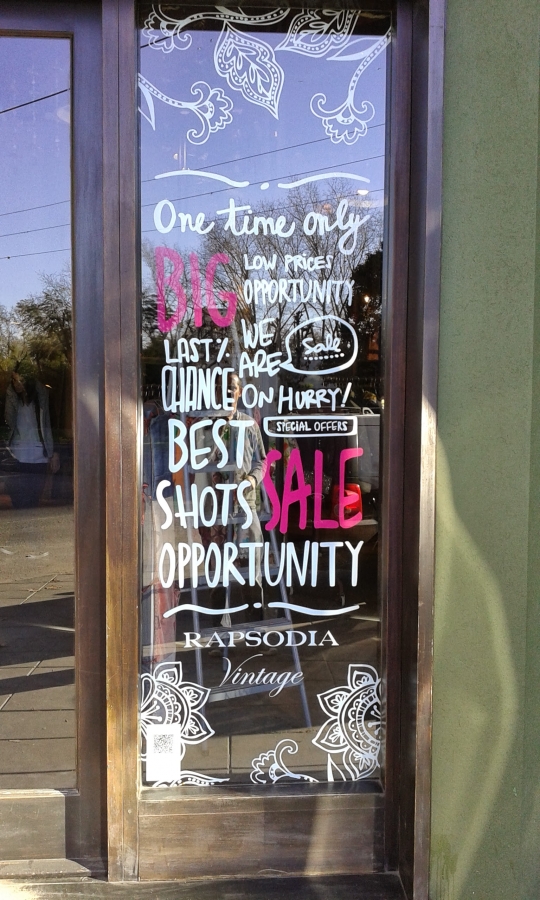 One time only
BIG
LOW PRICES
OPPORTUNITY
LAST %
CHANCE
WE
ARE
Sale
ON HURRY!
BEST
SPECIAL OFFERS
SHOTS
SALE
OPPORTUNITY
RAPSODIA
Vintage